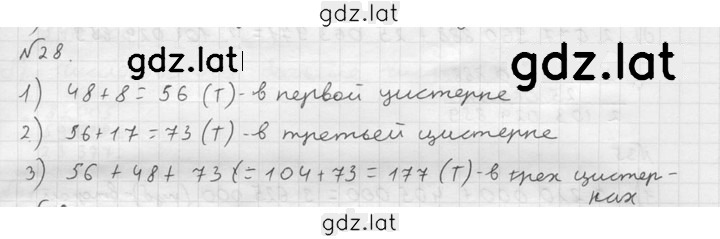 gdz.lat
№28.
gdz.lat
gdz.lat
1) 48+8= 56 (т)-в первой цистерне
2) 56+17=73 (т)-в третьей цистерне
3) 56 + 48 + 73 (= 104+73 = 177 (т)-в трех цистер-
нах
gdz.lat